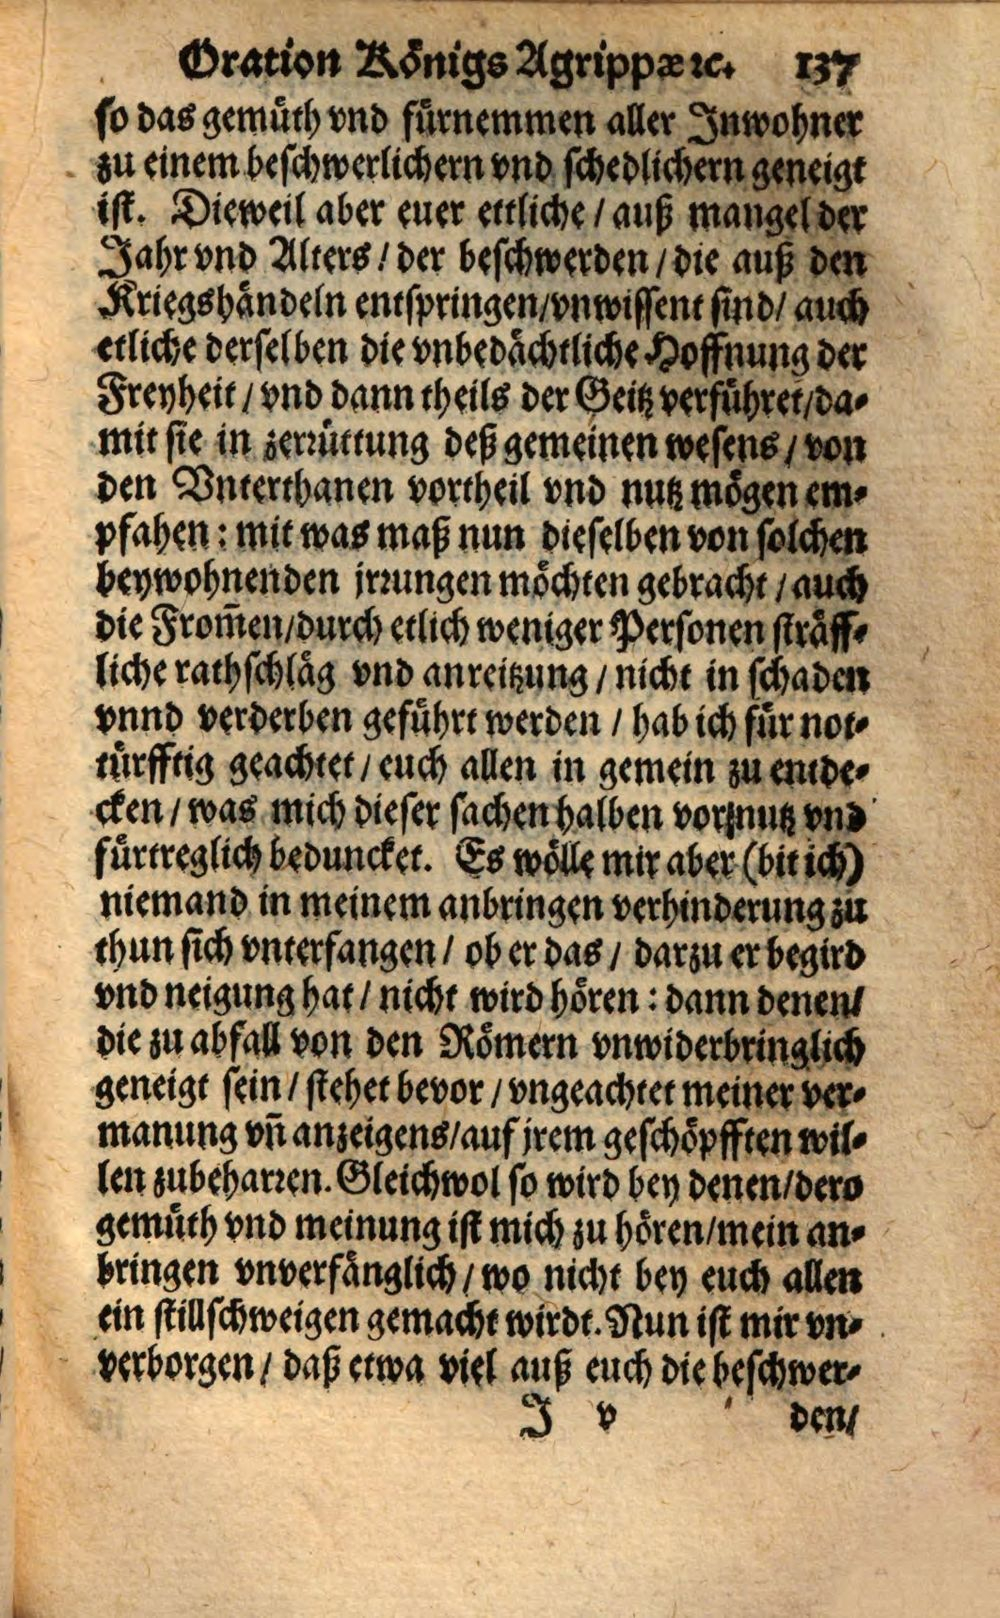 Oration Königs Agrippæ ꝛc. 137
so das gemüth vnd fürnemmen aller Inwohner
zu einem beschwerlichern vnd schedlichern geneigt
ist. Dieweil aber euer ettliche / auß mangel der
Jahr vnd Alters / der beschwerden / die auß den
Kriegshändeln entspringen / vnwissent sind / auch
etliche derselben die vnbedächtliche Hoffnung der
Freyheit / vnd dann theils der Geitz verführet / da-
mit sie in zerrüttung deß gemeinen wesens / von
den Vnterthanen vortheil vnd nutz mögen em-
pfahen : mit was maß nun dieselben von solchen
beywohnenden jrrungen möchten gebracht / auch
die From̃en / durch etlich weniger Personen sträff-
liche rathschläg vnd anreitzung / nicht in schaden
vnnd verderben geführt werden / hab ich für not-
türfftig geachtet / euch allen in gemein zu entde-
cken / was mich dieser sachen halben vor nutz vnd
fürtreglich beduncket. Es wölle mir aber (bit ich)
niemand in meinem anbringen verhinderung zu
thun sich vnterfangen / ob er das / darzu er begird
vnd neigung hat / nicht wird hören : dann denen /
die zu abfall von den Römern vnwiderbringlich
geneigt sein / stehet bevor / vngeachtet meiner ver-
manung vñ anzeigens / auf jrem geschöpfften wil-
len zubeharren. Gleichwol so wird bey denen / dero
gemüth vnd meinung ist mich zu hören / mein an-
bringen vnverfänglich / wo nicht bey euch allen
ein stillschweigen gemacht wirdt. Nun ist mir vn-
verborgen / daß etwa viel auß euch die beschwer-
J v den /